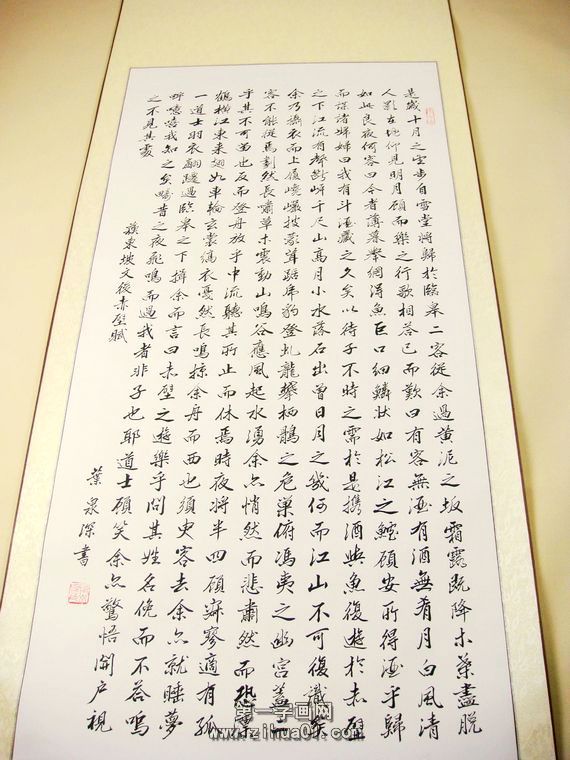 是歲十月之望步自雪堂將歸於臨皋二客從余過黃泥之坂霜露既降木葉盡脫
人影在地仰見明月顧而樂之行歌相答已而歎曰有客無酒有酒無肴月白風清
如此良夜何客曰今者薄暮舉網得魚巨口細鱗狀如松江之鱸顧安所得酒乎歸
而謀諸婦婦曰我有斗酒藏之久矣以待子不時之需於是攜酒與魚復遊於赤壁
之下江流有聲斷岸千尺山高月小水落石出曾日月之幾何而江山不可復識矣
余乃攝衣而上履巉巖披蒙茸踞虎豹登虬龍攀栖鶻之危巢俯馮夷之幽宮蓋二
客不能從焉劃然長嘯草木震動山鳴谷應風起水湧余亦悄然而悲肅然而恐凜
乎其不可留也反而登舟放乎中流聽其所止而休焉時夜將半四顧寂寥適有孤
鶴橫江東來翅如車輪玄裳縞衣戛然長鳴掠余舟而西也須臾客去余亦就睡夢
一道士羽衣翩躚過臨皋之下揖余而言曰赤壁之遊樂乎問其姓名俛而不答嗚
呼噫嘻我知之矣疇昔之夜飛鳴而過我者非子也耶道士顧笑余亦驚悟開戶視
之不見其處
蘇東坡文後赤壁賦
葉泉深書
第一字画网
www.zihua01.com